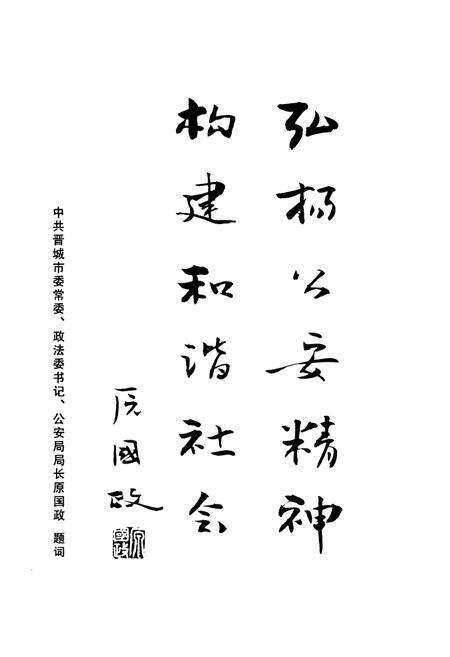 弘扬公安精神
构建和谐社会
原國政
中共晋城市委常委、政法委书记、公安局局长原国政 题词